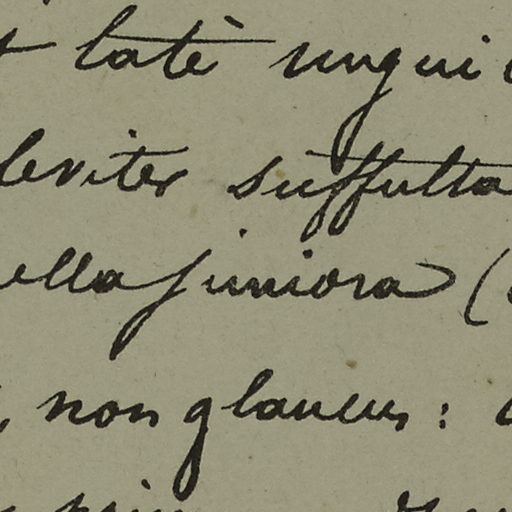 latè ungui
leviter suffulta
ella juniora (
, non glaucus :